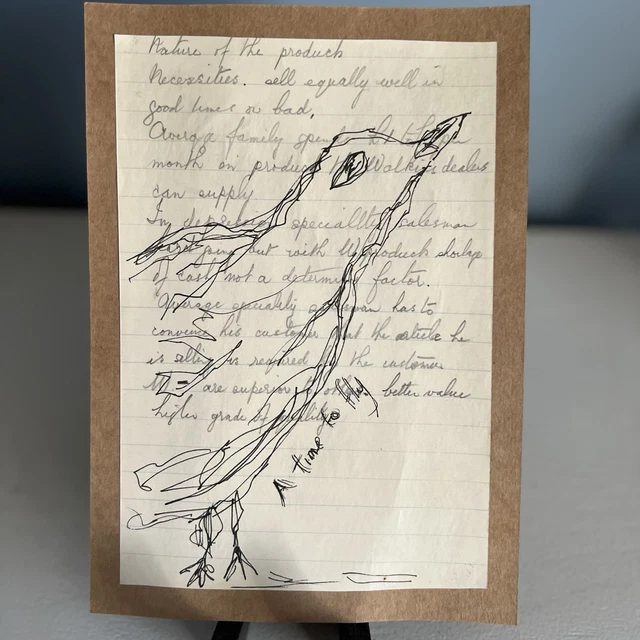 Nature of the product
Necessities. sell equally well in
good times or bad.
Average family spend
month on products Watkins dealers
can supply
In depression speciality salesman
but with product shortage
of cash not a determing factor.
Average speciality has to
convince his customer that the article he
is selling is required the customer
are superior better value
higher grade of quality
A time to fly